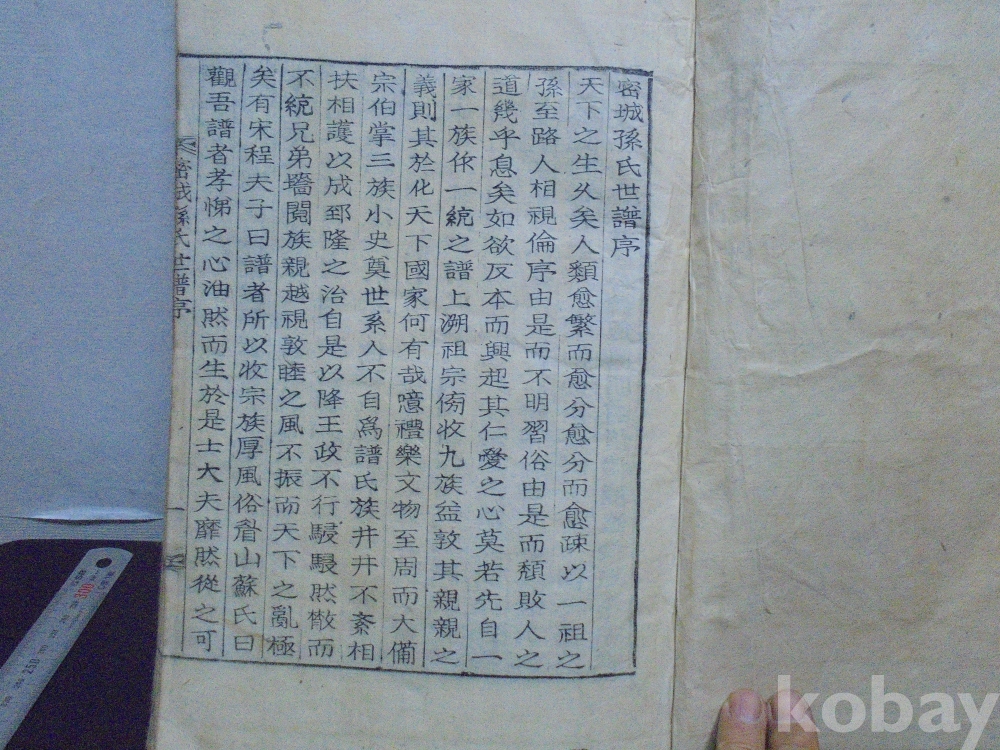 密城孫氏世譜序
天下之生久矣人類愈繁而愈分愈分而愈疎以一祖之
孫至路人相視倫序由是而不明習俗由是而頹敗人之
道幾乎息矣如欲反本而興起其仁愛之心莫若先自一
家一族作一統之譜上溯祖宗傍收九族益敦其親親之
義則其於化天下國家何有哉噫禮樂文物至周而大備
宗伯掌三族小史奠世系人不自爲譜氏族井井不紊相
扶相護以成郅隆之治自是以降王政不行駸駸然散而
不統兄弟墻鬩族親越視敦睦之風不振而天下之亂極
矣有宋程夫子曰譜者所以收宗族厚風俗眉山蘇氏曰
觀吾譜者孝悌之心油然而生於是士大夫靡然從之可
密城孫氏世譜序
一
kobay